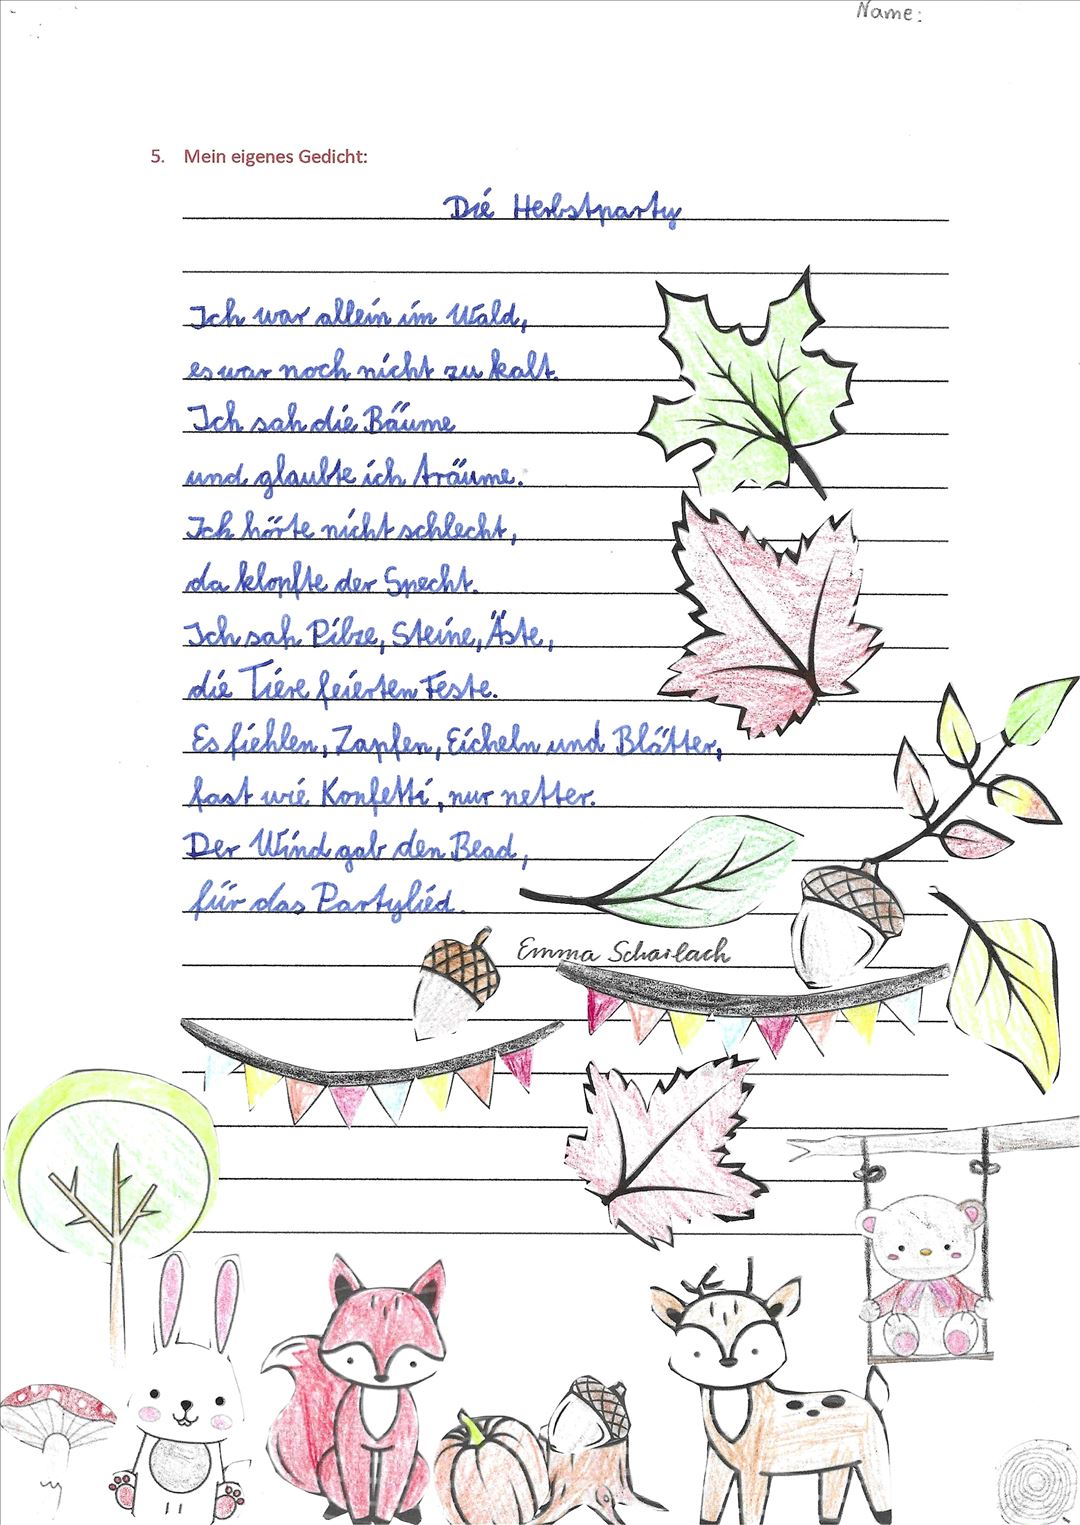 Name:
5. Mein eigenes Gedicht:
Die Herbstparty
Ich war allein im Wald,
es war noch nicht zu kalt.
Ich sah die Bäume
und glaubte ich träume.
Ich hörte nicht schlecht,
da klopfte der Specht.
Ich sah Pilze, Steine, Äste,
die Tiere feierten Feste.
Es fiehlen, Zapfen, Eicheln und Blätter,
fast wie Konfetti, nur netter.
Der Wind gab den Bead,
für das Partylied.
Emma Scharlach